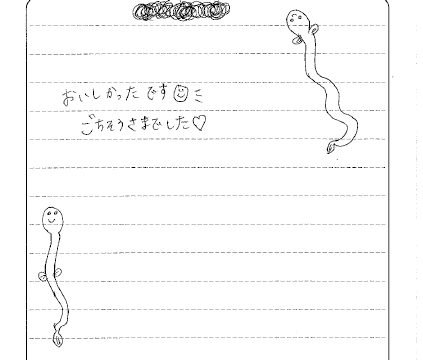 おいしかったです
ごちそうさまでした♡